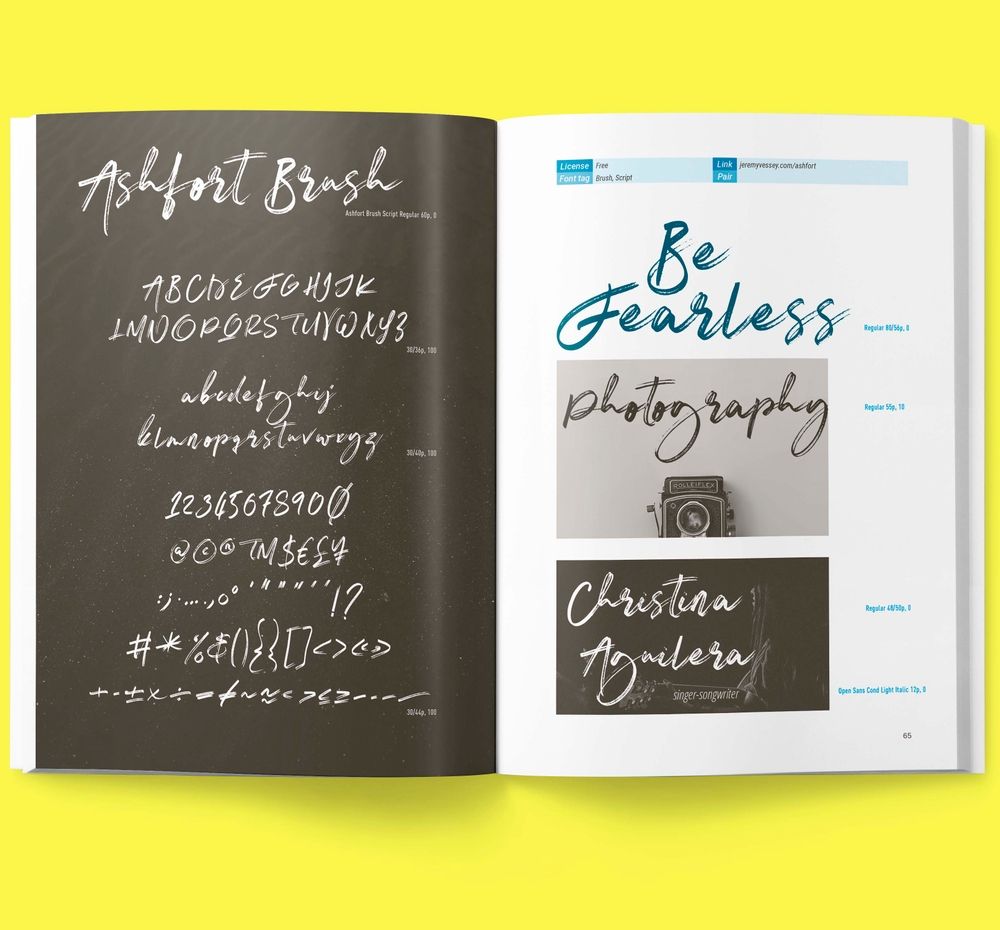 Ashfort Brush
Ashfort Brush Script Regular 60p, 0
ABCDEFGHIJK
LMNOPQRSTUVWXYZ
30/36p, 100
abcdefghij
klmnopqrstuvwxyz
30/40p, 100
12345678900
@©®TM$€£¥
:;·….,o° '"""''!?
#*%&(){}[]<>«»
+-±×÷=≠~≈<>≤≥---
30/44p, 100
License Free
Font tag Brush, Script
Link jeremyvessey.com/ashfort
Pair
Be
Fearless
Regular 80/56p, 0
photography
Regular 55p, 10
ROLLEIFLEX
Christina
Aguilera
singer-songwriter
Regular 48/50p, 0
Open Sans Cond Light Italic 12p, 0
65